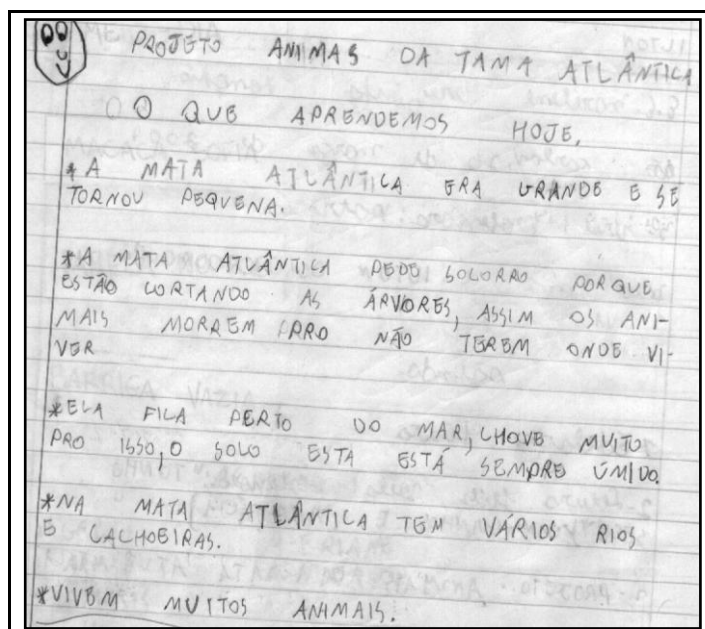 PROJETO ANIMAS DA TAMA ATLÂNTICA
O QUE APRENDEMOS HOJE.
*A MATA ATLÂNTICA ERA GRANDE E SE
TORNOU PEQUENA.
*A MATA ATLÂNTICA PEDE SOCORRO PORQUE
ESTÃO CORTANDO AS ÁRVORES, ASSIM OS ANI-
MAIS MORREM PRRO NÃO TEREM ONDE VI-
VER
*ELA FICA PERTO DO MAR, CHOVE MUITO
PRO ISSO, O SOLO ESTA ESTÁ SEMPRE ÚMIDO.
*NA MATA ATLÂNTICA TEM VÁRIOS RIOS
E CACHOEIRAS.
*VIVEM MUITOS ANIMAIS.